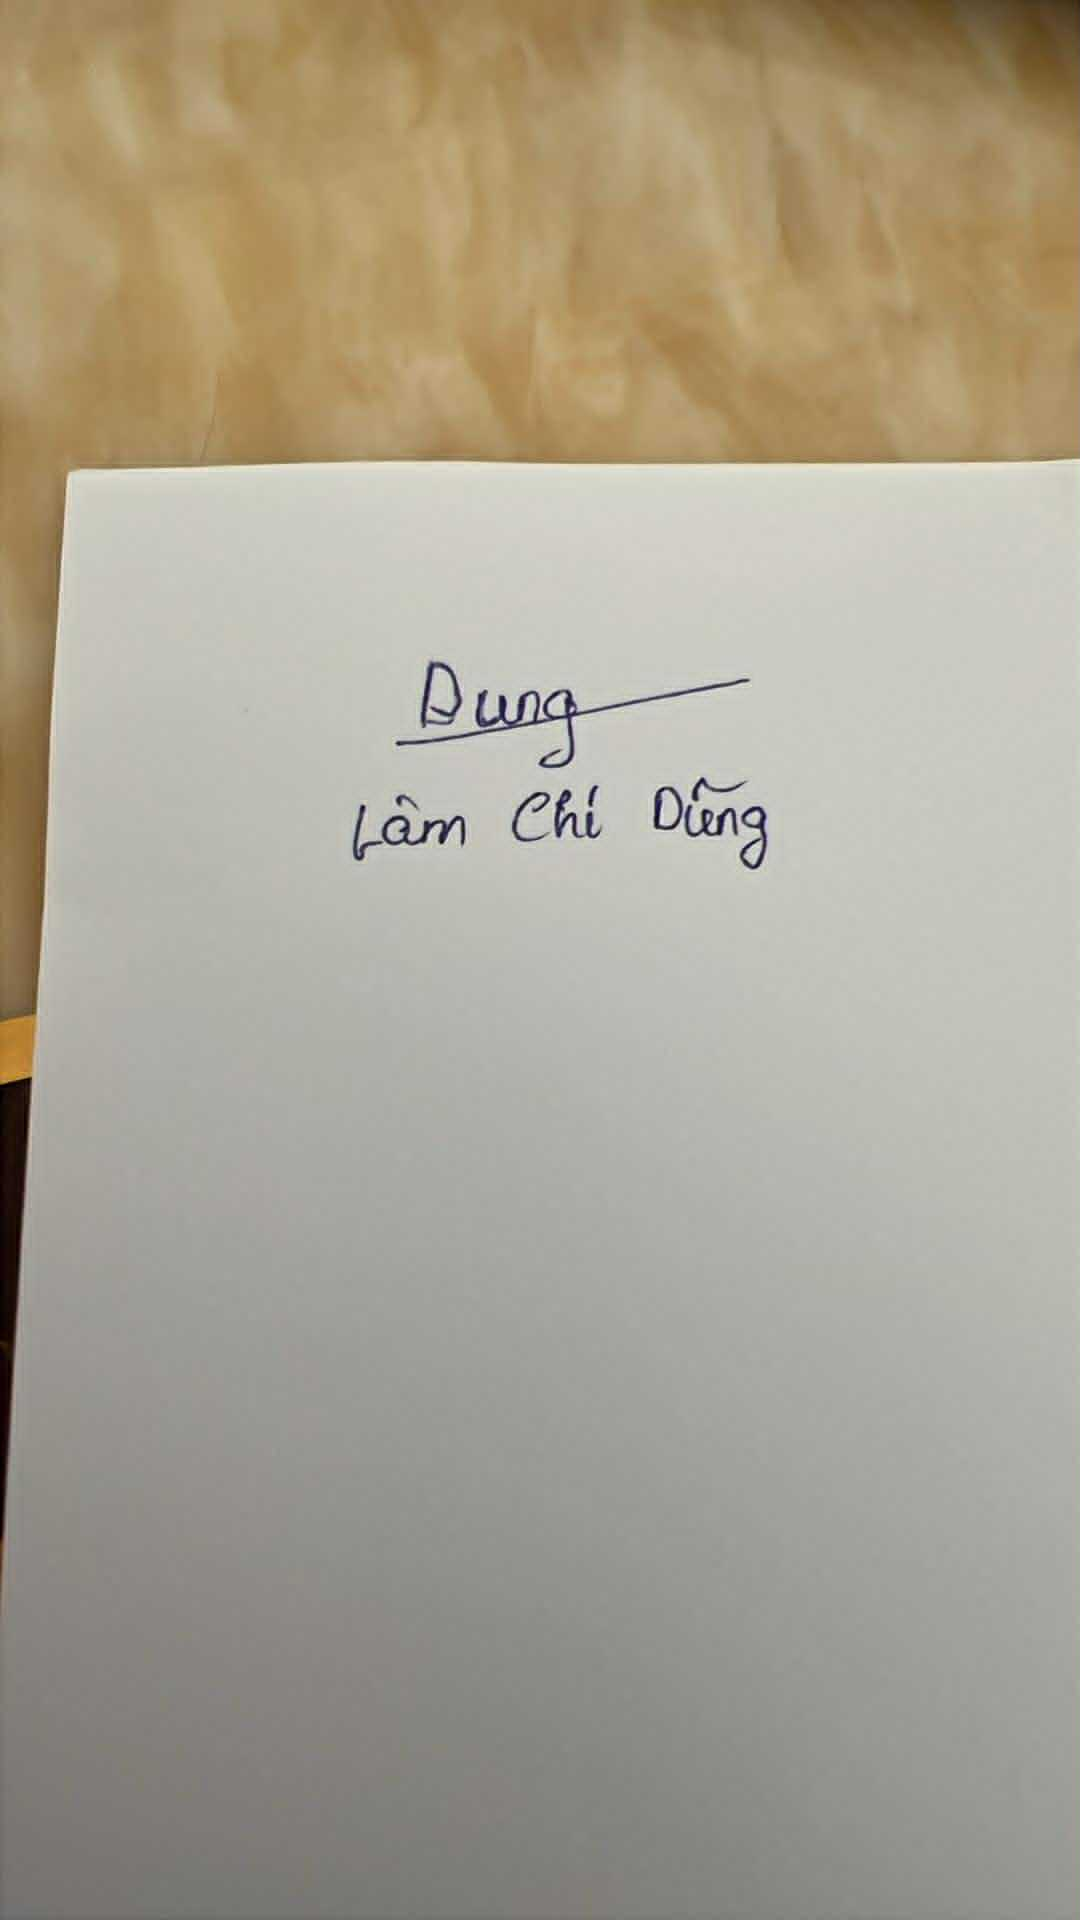 Dung
Lâm Chí Dũng